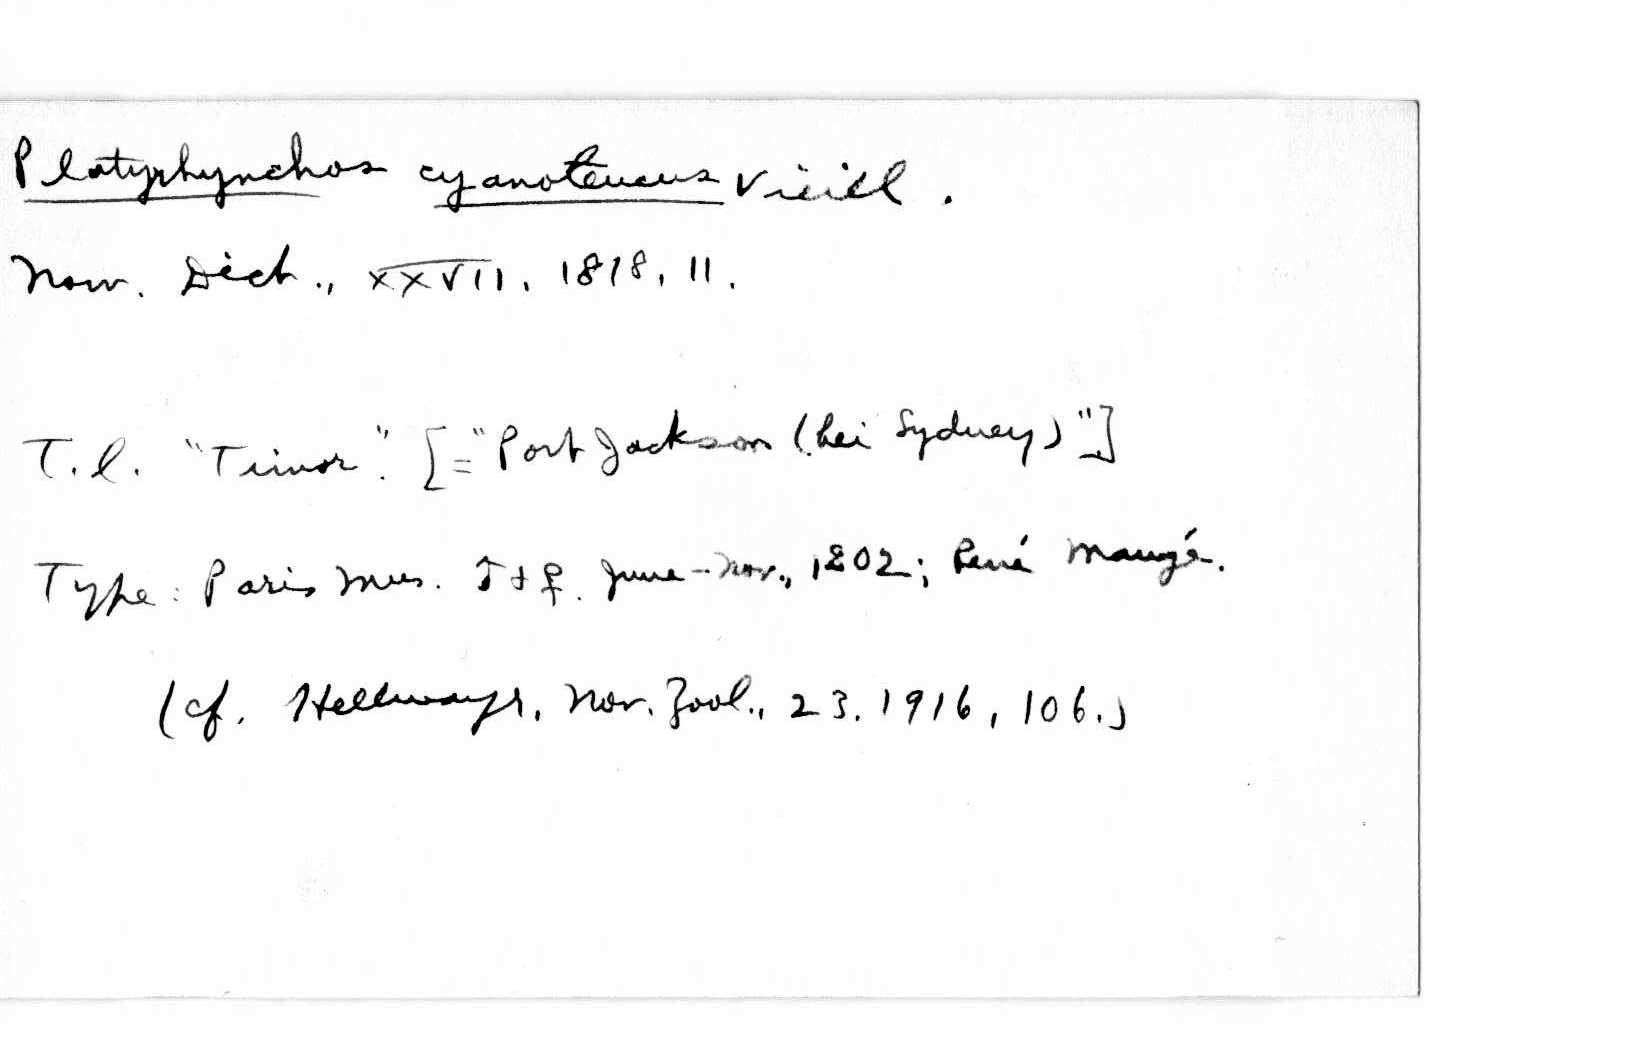 Platyrhynchos cyanoleucus Vieill.
Nouv. Dict., XXVII, 1818, 11.
T.l. "Timor". [="Port Jackson (bei Sydney)"]
Type: Paris Mus. ♂ + ♀. June-Nov., 1802; René Maugé.
(cf. Hellmayr, Nov. Zool., 23, 1916, 106.)